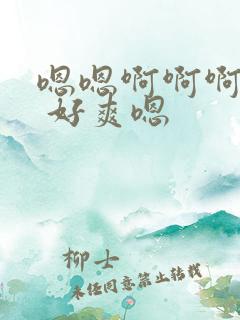 嗯嗯啊啊啊
好爽嗯
柳士
未经同意禁止转载